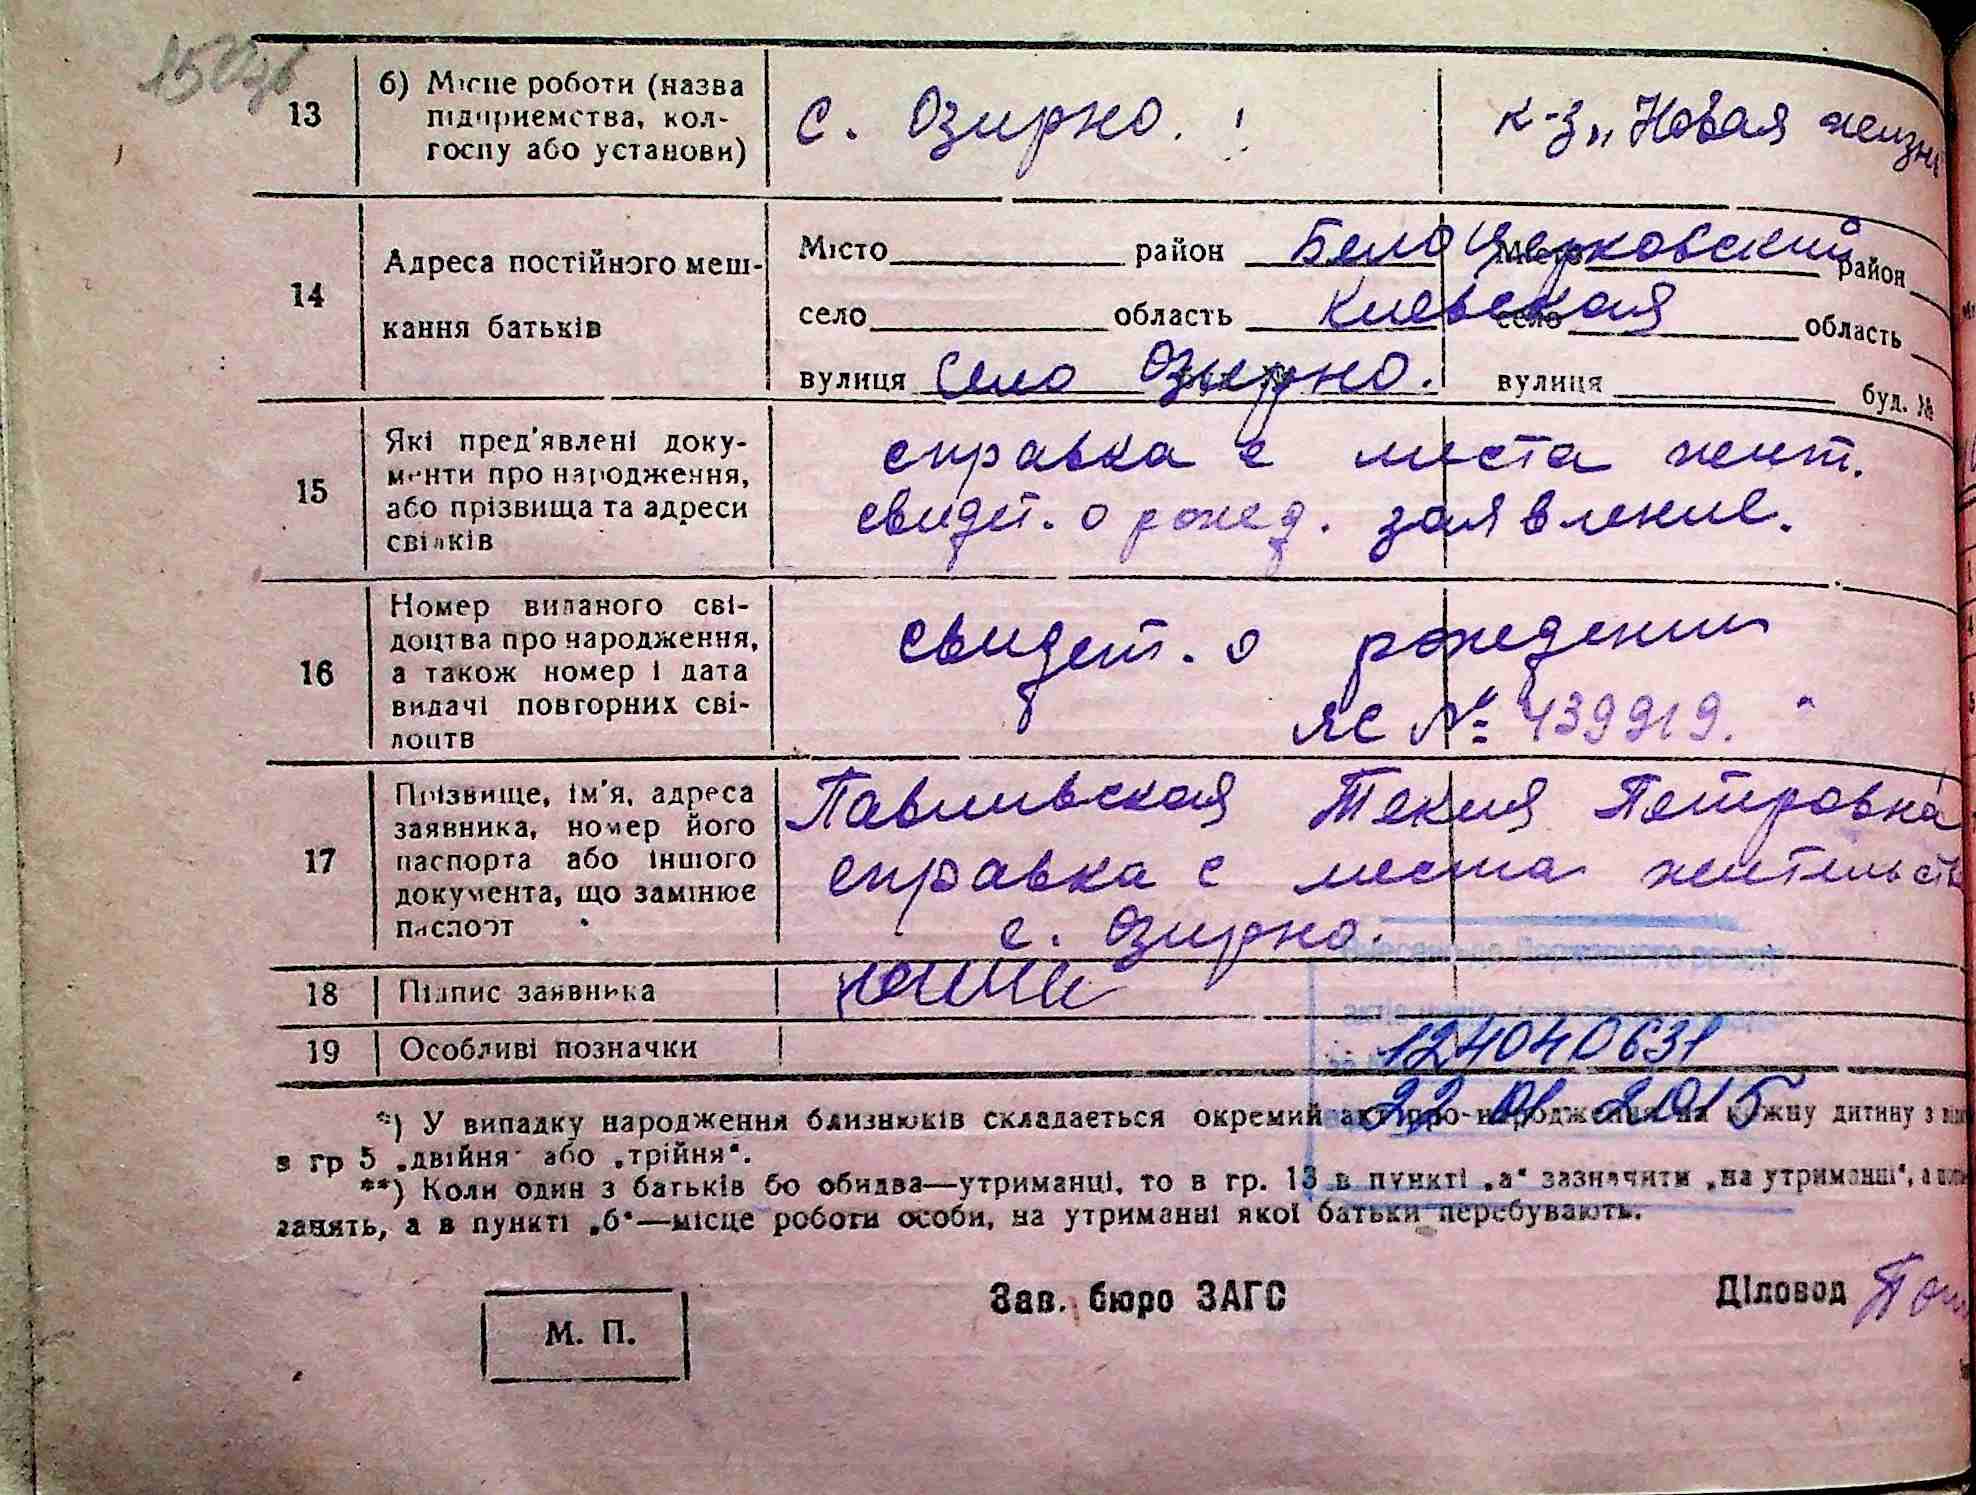 13
б) Місце роботи (назва
підприємства, кол-
госпу або установи)
с. Озирно.
к-з „Новая жизнь
14
Адреса постійного меш-
кання батьків
Місто район Белоцерковский
село область Киевская
вулиця село Озирно.
Місто район
село область
вулиця буд. №
15
Які пред'явлені доку-
менти про народження,
або прізвища та адреси
свідків
справка с места жит.
свидет. о рожд. заявление.
16
Номер виданого сві-
доцтва про народження,
а також номер і дата
видачі повторних сві-
доцтв
свидет. о рождении
ЯС № 439919.
17
Прізвище, ім'я, адреса
заявника, номер його
паспорта або іншого
документа, що замінює
паспорт
Текля Петровна
справка с места жительств
с. Озирно.
18
Підпис заявника
19
Особливі позначки
124040631
22 01 2015
*) У випадку народження близнюків складається окремий акт про народження на кожну дитину з
в гр 5 „двійня" або „трійня".
**) Коли один з батьків бо обидва—утриманці, то в гр. 13 в пункті „а" зазначити „на утриманні", а
занять, а в пункті „б"—місце роботи особи, на утриманні якої батьки перебувають.
М. П.
Зав. бюро ЗАГС
Діловод